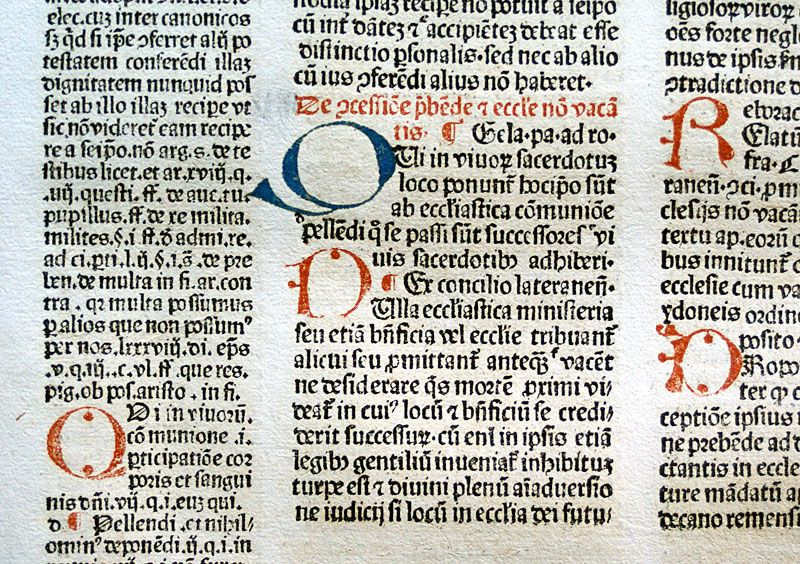 elec. cuz inter canonicos
sꝫ qd̄ si ip̄e ꝯferret alij po
testatem conferēdi illaꝫ
dignitatem nunquid pos
set ab illo illaꝫ recipe vt
sic nō videret̄ eam recipe
re a seip̄o. nō arg. s. de te
stibus licet. et ar. xviij. q.
.uij. questi. ff. de auc. tu.
pupillus. ff. de re milita.
milites. §. i ff. d̄ admi. re.
ad ci. ꝑti. l. ij. §. i. ā. de pre
ben. de multa in fi. ar. con
tra . qꝛ multa possumus
ꝑ alios que non possumꝰ
per nos. lxxxviij. di. ep̄s
.v. q. iij. . c. vl. ff. que res.
pig. ob pos. aristo . in fi.
Qi in viuoꝝ.
cō munione .i.
ꝑticipatiōe cor
poris et sangui
nis dn̄i. vij. q. i. euꝫ qui.
d. ¶ Pellendi . et nihil/
ominꝰ deponēdi. ij. q. i. in
cū int̄ dāteꝫ ⁊ accipiēteꝫ debeat esse
distinctio ꝑsonalis. sed nec ab alio
cū ius ꝯferēdi alius nō haberet.
De ꝯcessiōe p̄bēde ⁊ eccl̄ie nō vacā
tis. ¶ Gela. pa. ad ro.
QUi in viuoꝝ sacerdotuꝫ
loco ponunt̄ hoc ip̄o sūt
ab eccl̄iastica cōmuniōe
pellēdi q̄ se passi sūt successores vi
uis sacerdotibꝰ adhiberi.
¶ Ex concilio lateraneñ.
NUlla eccl̄iastica ministeria
seu etiā bn̄ficia vel eccl̄ie tribuant̄
alicui seu ꝓmittant̄ anteqꝫ vacēt
ne desiderare q̄s mortē ꝓximi vi/
deat̄ in cuiꝰ locū ⁊ bn̄ficiū se credi/
derit successuꝝ. cū eni in ipsis etiā
legibꝰ gentiliū inueniat̄ inhibituꝫ
turpe est ⁊ diuini plenū aīaduersio
ne iudicij si locū in eccl̄ia dei futu/
ligiosoꝝ viroꝝ
oēs forte negl
nus de ipsis
ꝯtradictione d
R
fra. C
clesijs nō vacā
textu ap. eorū
bus innitunt̄
ecclesie cum va
ydoneis ordin
posito
PRopo
ter qꝫ c
ceptiōe ipsius
ne prebēde ad
ctantis in eccle
ture mādatū a
decano remensi